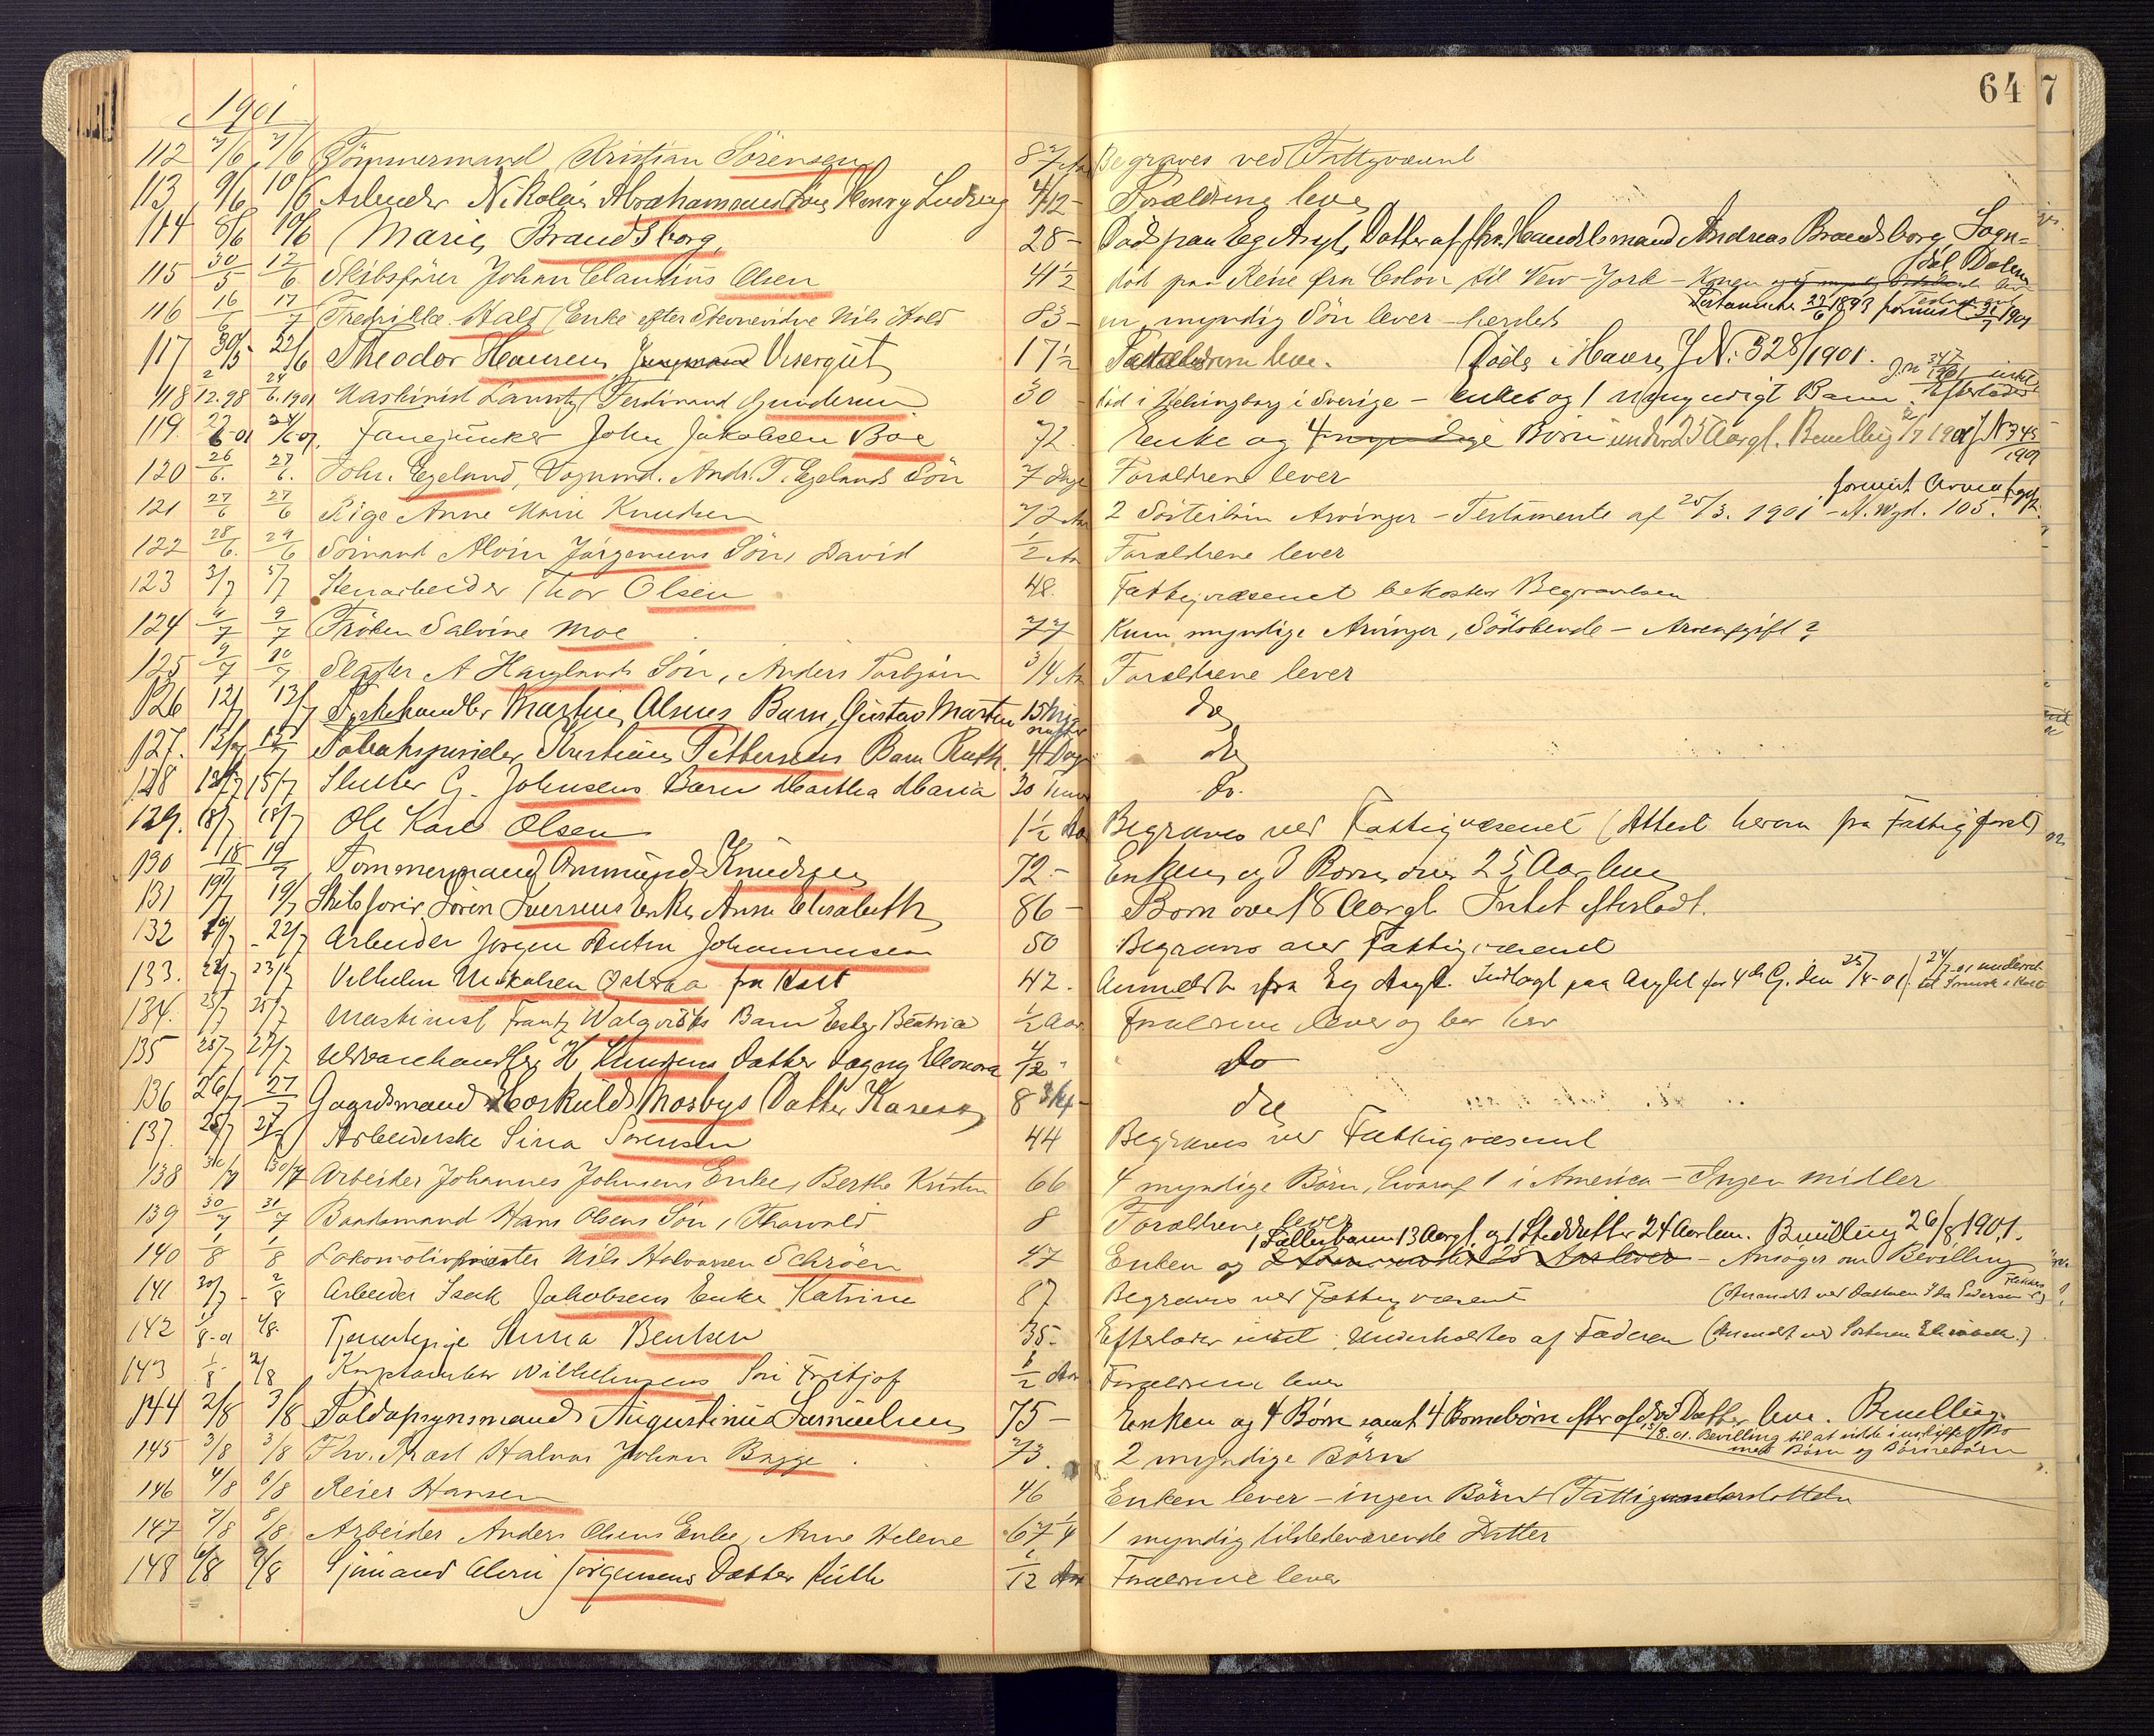 64 7
1901
112 7/6 7/6 Tömmermand Kristian Sörensen 87 Aar Begraves ved
113 9/6 10/6 Arbeider Nikolai Abrahamsens Søn Henry Ludvig 4/12 - Forældrene leve
114 8/6 10/6 Marie Brandsborg 28 - Død paa Eg Asyl, Datter af Handelsmand Andreas Brandsborg, Sogn=
dal Dalene
115 30/5 12/6 Skibsfører Johan Claudius Olsen 41 1/2 död paa Reise fra Colon til New-York - Konen og
116 16/6 17/7 Fredrikke Hald Enke efter Nils Hald 83 - en myndig Sön lever - herdets Testamente 27/6 1893
117 30/5 22/6 Theodor Hansen, Visergut 17 1/2 Forældrene leve. Døde i Havre J N: 328/1901.
118 2/12.98 24/6.1901 Maskinist Lauritz Ferdinand Gundersen 30 död i Helsingborg i Sverige - Enke og 1 umyndigt Barn. Efterlader intet
119. 23/6-01 24/6 01. Fanejunker John Jakobsen Boe 72. Enke og 4 Börn under 25 Aargl. Bevilling 2/7 1901 J N 345
1901
120 26/6. 27/6. Joh. Egeland, Vognmd. Andr. T. Egelands Sön 7 Dage Forældrene lever
121 27/6 27/6 Pige Anne Marie Knudsen 72 Aar 2 Sösterbörn Arvinger - Testamente af 25/3. 1901
122 28/6. 29/6 Sömand Alvin Jörgensens Sön, David 1/2 Aar Forældrene lever
123 3/7 5/7 Stenarbeider Thor Olsen 48. Fattigvæsenet bekoster Begravelsen
124 4/7 9/7 Fröken Salvine Moe 77 Kun myndige Arvinger, Södskende - Arveafgift?
125 9/7 10/7 Slagter A Hauglands Sön, Anders Torbjörn 3/4 Aar Forældrene lever
126 12/7 13/7 Fiskehandler Martin Olsens Barn, Gustav Martin 15 do
127. 12/7 15/7 Tobakspinder Kristian Pettersens Barn Ruth. 4 Dage do
128 12/7 15/7 Slutter G. Johnsens Barn Martha Maria 30 Timer do.
129. 18/7 18/7 Ole Karl Olsen 1 1/2 Aar Begraves ved Fattigvæsenet (Attest herom fra Fattigforst)
130 18 19/7 Tömmermand Ommund Knudsen 72.- Enken og 3 Børn over 25 Aar leve
131 19/7 19/7 Skibsfører Sören Iversens Enke Anne Elisabeth 86 - Børn over 18 Aargl. Intet efterladt.
132 19/7 - 22/7 Arbeider Jörgen Anton Johannesen 50 Begraves ved Fattigvæsenet
133. 22/7 23/7 Vilhelm Mikalsen Osteraa fra Holt 42. Anmeldt fra Eg Asyl. Indlagt paa Asylet for 4de G. den 25/4-01.
134. 23/7 25/7 Maskinist Frantz Walqvists Barn Esther Beatrice 1/2 Aar. Forældrene lever og bor her
135 25/7 27/7 Uldvarehandler H. Knudsens Datter Dagny Eleonora 4/12 - do
136 26/7 27/7 Gaardsmand Hoskuld Mosbys Datter Karen 8 3/4 - do
137. 25/7 27/7 Arbeiderske Sina Sörensen 44 Begraves ved Fattigvæsenet
138 30/7 30/7 Arbeider Johannes Johnsens Enke, Berthe Kristine 66 4 myndige Börn, hvoraf 1 i Amerika - Ingen midler
139 30/7 31/7 Baadsmand Hans Olsens Sön, Thorvald 8 Forældrene lever
1 Fællesbarn 13 Aargl. og 1 Steddatter 24 Aar leve. Bevilling 26/8 1901.
140 1/8 1/8 Nils Halvorsen Schröen 47 Enken og 2 Börn under 25 Aar lever - Ansöger om Bevilling
141 30/7 - 2/8 Arbeider Isak Jakobsens Enke Katrine 87 Begraves ved Fattigvæsenet (Anmeldt ved Datteren Ida Pedersen)
142 1/8-01 /8. Tjenestepige Anna Bentsen 35. Efterlader intet. Underholdtes af Faderen (Anmeldt ved Søsteren Elisabeth.)
143 1/8 2/8 Wilhelmsens Sön Fritjof 1/2 Aar Forældrene lever
144 2/8 3/8 Toldopsynsmand Augustinus Samuelsen 75 - Enken og 4 Børn samt 4 Børnebørn efter afdød Datter leve. Bevilling.
13/8.01. Bevilling til at sidde i uskiftet Bo
med Börn og Börnebörn
145 3/8 3/8 Fhv. Halvor Johan Bagge 73. 2 myndige Börn
146 4/8 6/8 Reier Hansen 46 Enken lever - ingen Börn Fattigunderstöttelse
147 7/8 8/8 Arbeider Anders Olsens Enke, Anne Helene 67 1/4 1 myndig tilstedeværende Datter
148 6/8 9/8 Sjömand Alvin Jörgensens Datter Ruth /12 Aar Forældrene lever